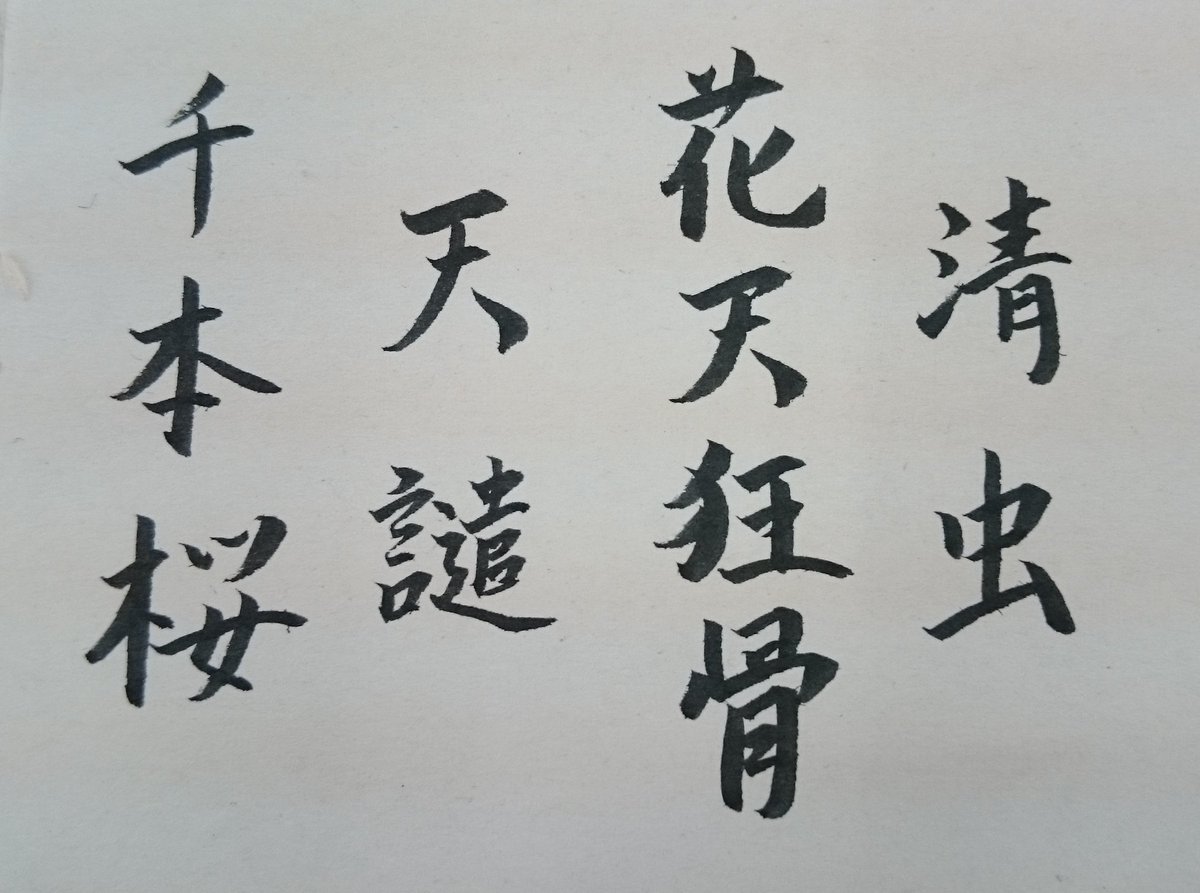 清虫
花天狂骨
天譴
千本桜